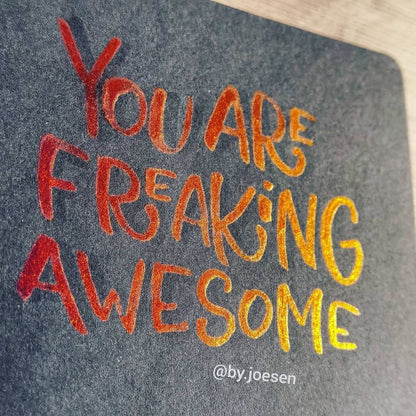 YOU ARE
FREAKING
AWESOME
@by.joesen